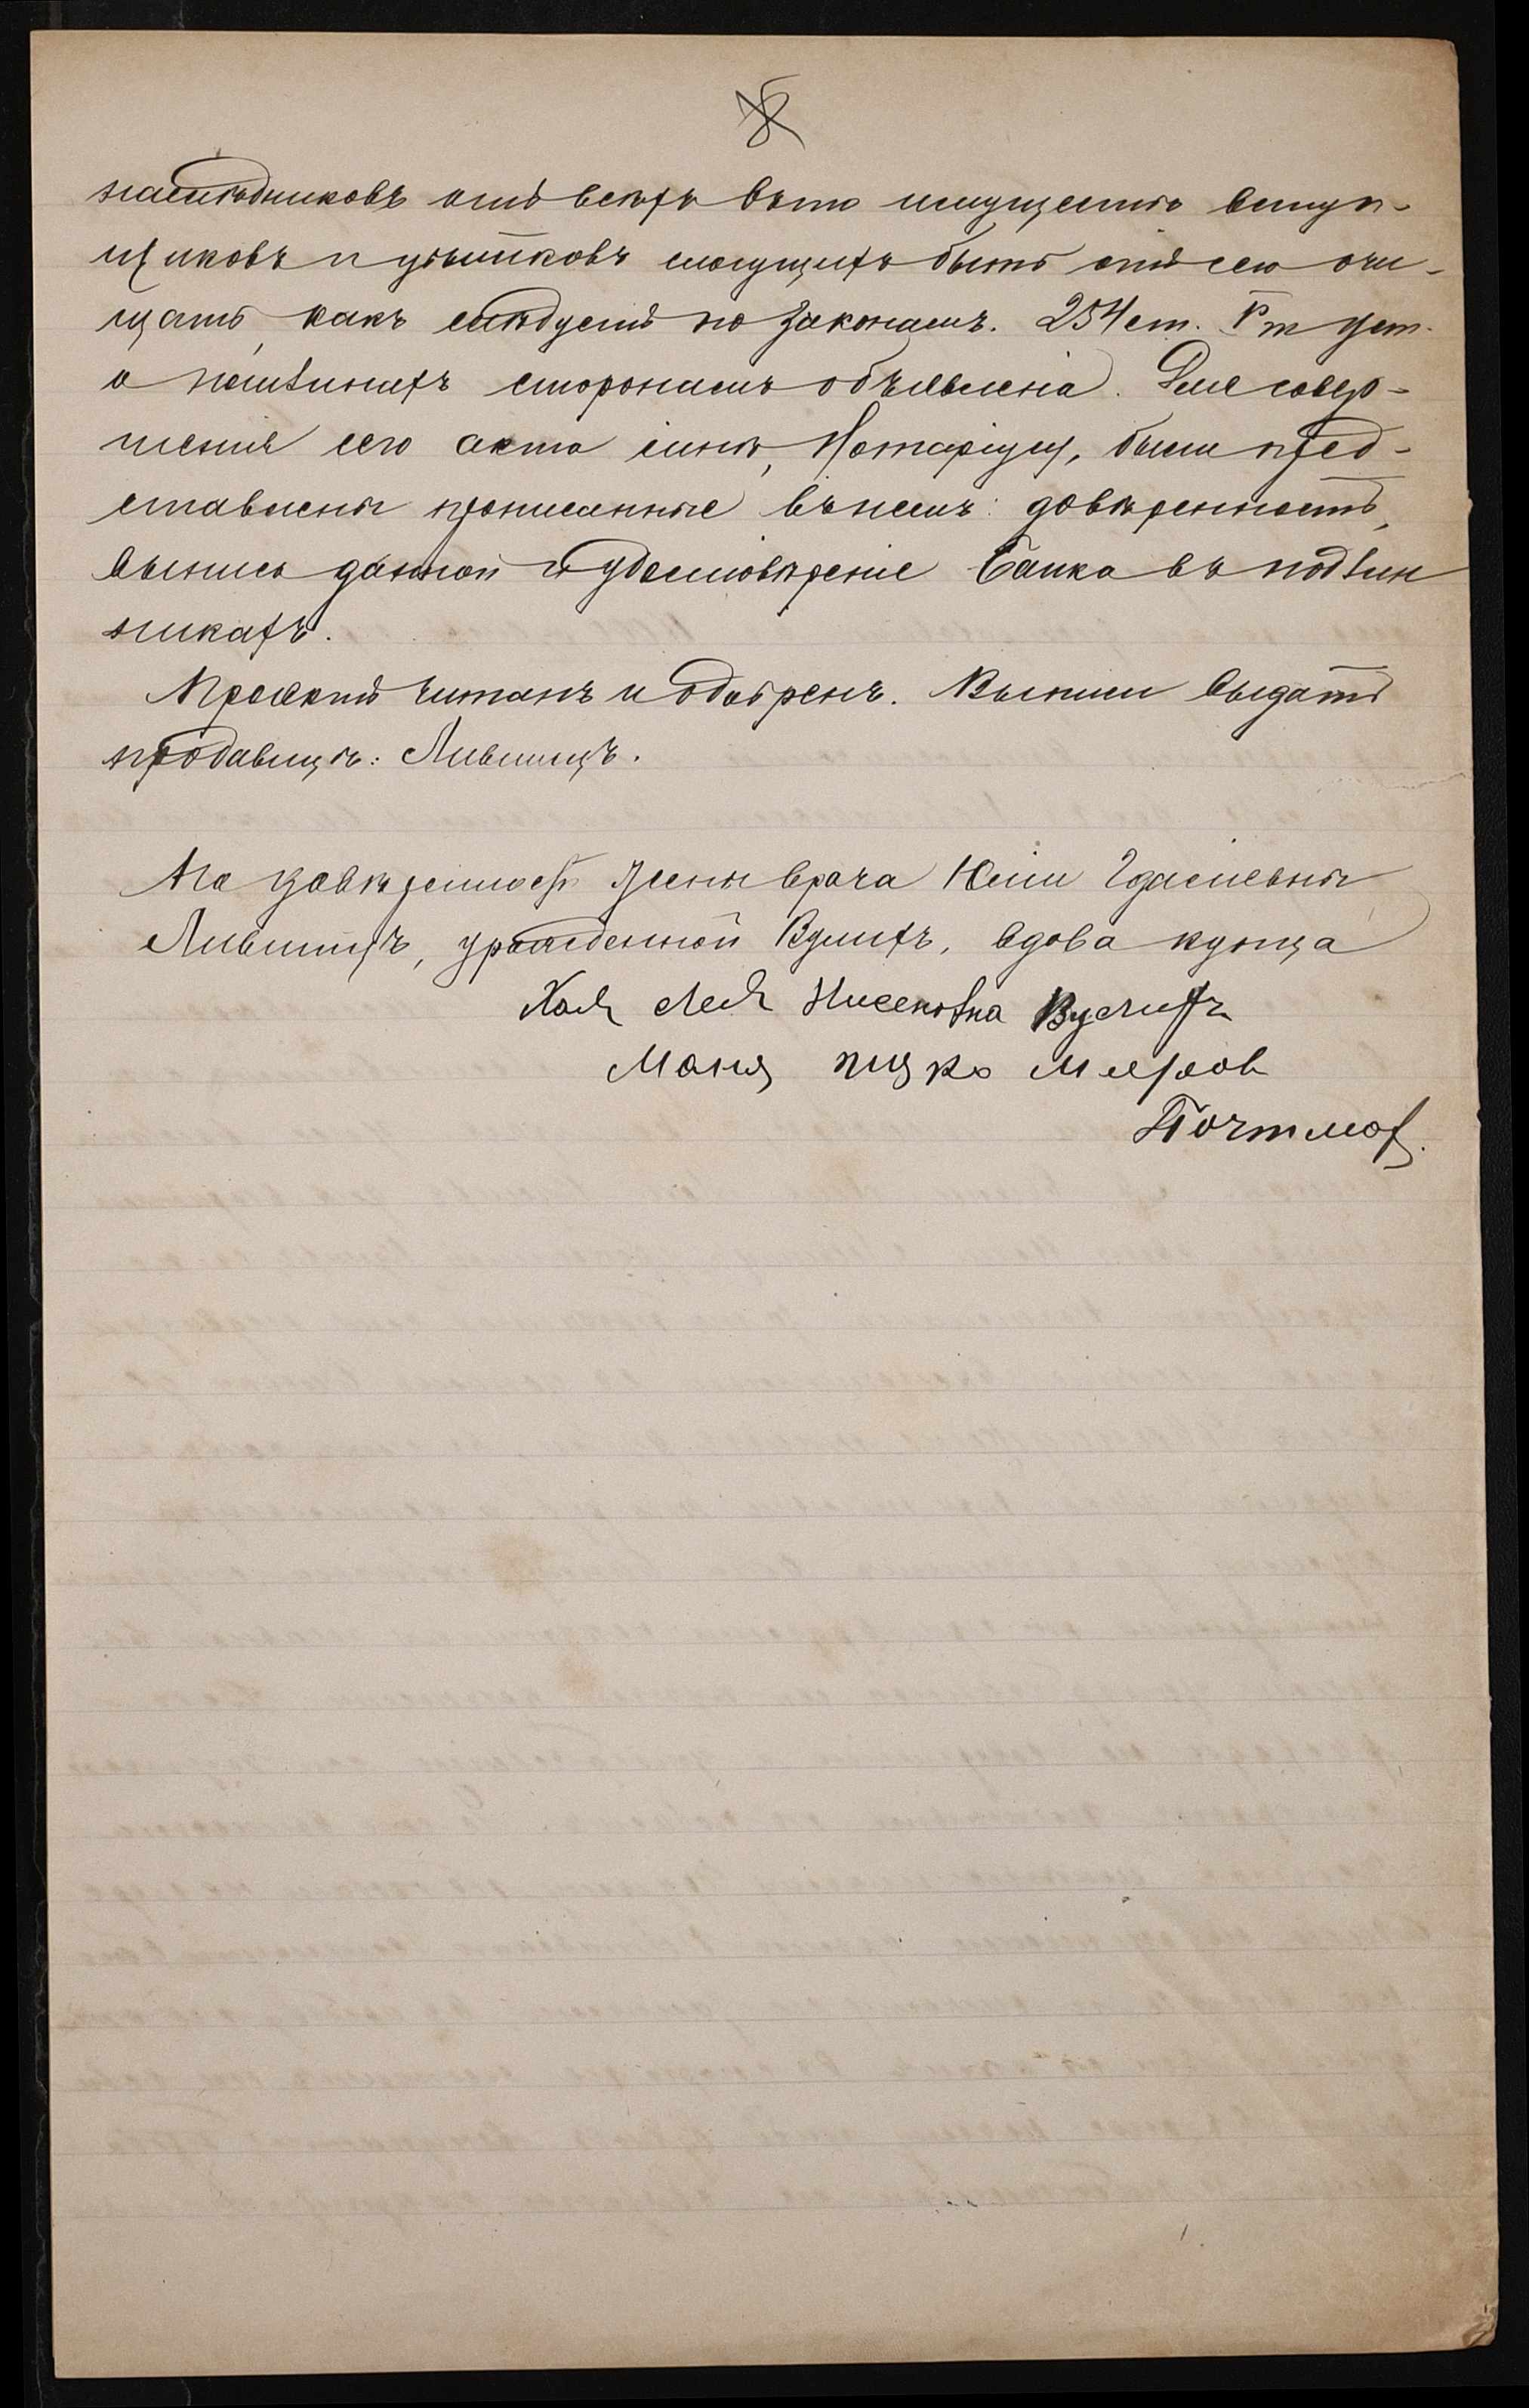 наслѣдниковъ отъ всѣхъ въ то имущество вступ-
щиковъ и убытковъ могущихъ быть отъ сего очи-
щать, какъ слѣдуетъ по законамъ. 254 ст. V т уст.
о пошлинахъ сторонамъ объявлена. Для совер-
шенія сего акта мнѣ, Нотаріусу, были пред-
ставлены прописанные въ немъ: довѣренность,
выпись данной и удостовѣреніе Банка въ подлин
никахъ.
Проектъ читанъ и одобренъ. Выписи выдать
продавцѣ: Лившицъ.
По довѣренности жены врача
Лившицъ, урожденной Вулихъ, вдова купца
Хая Лея Нисеновна Вулихъ